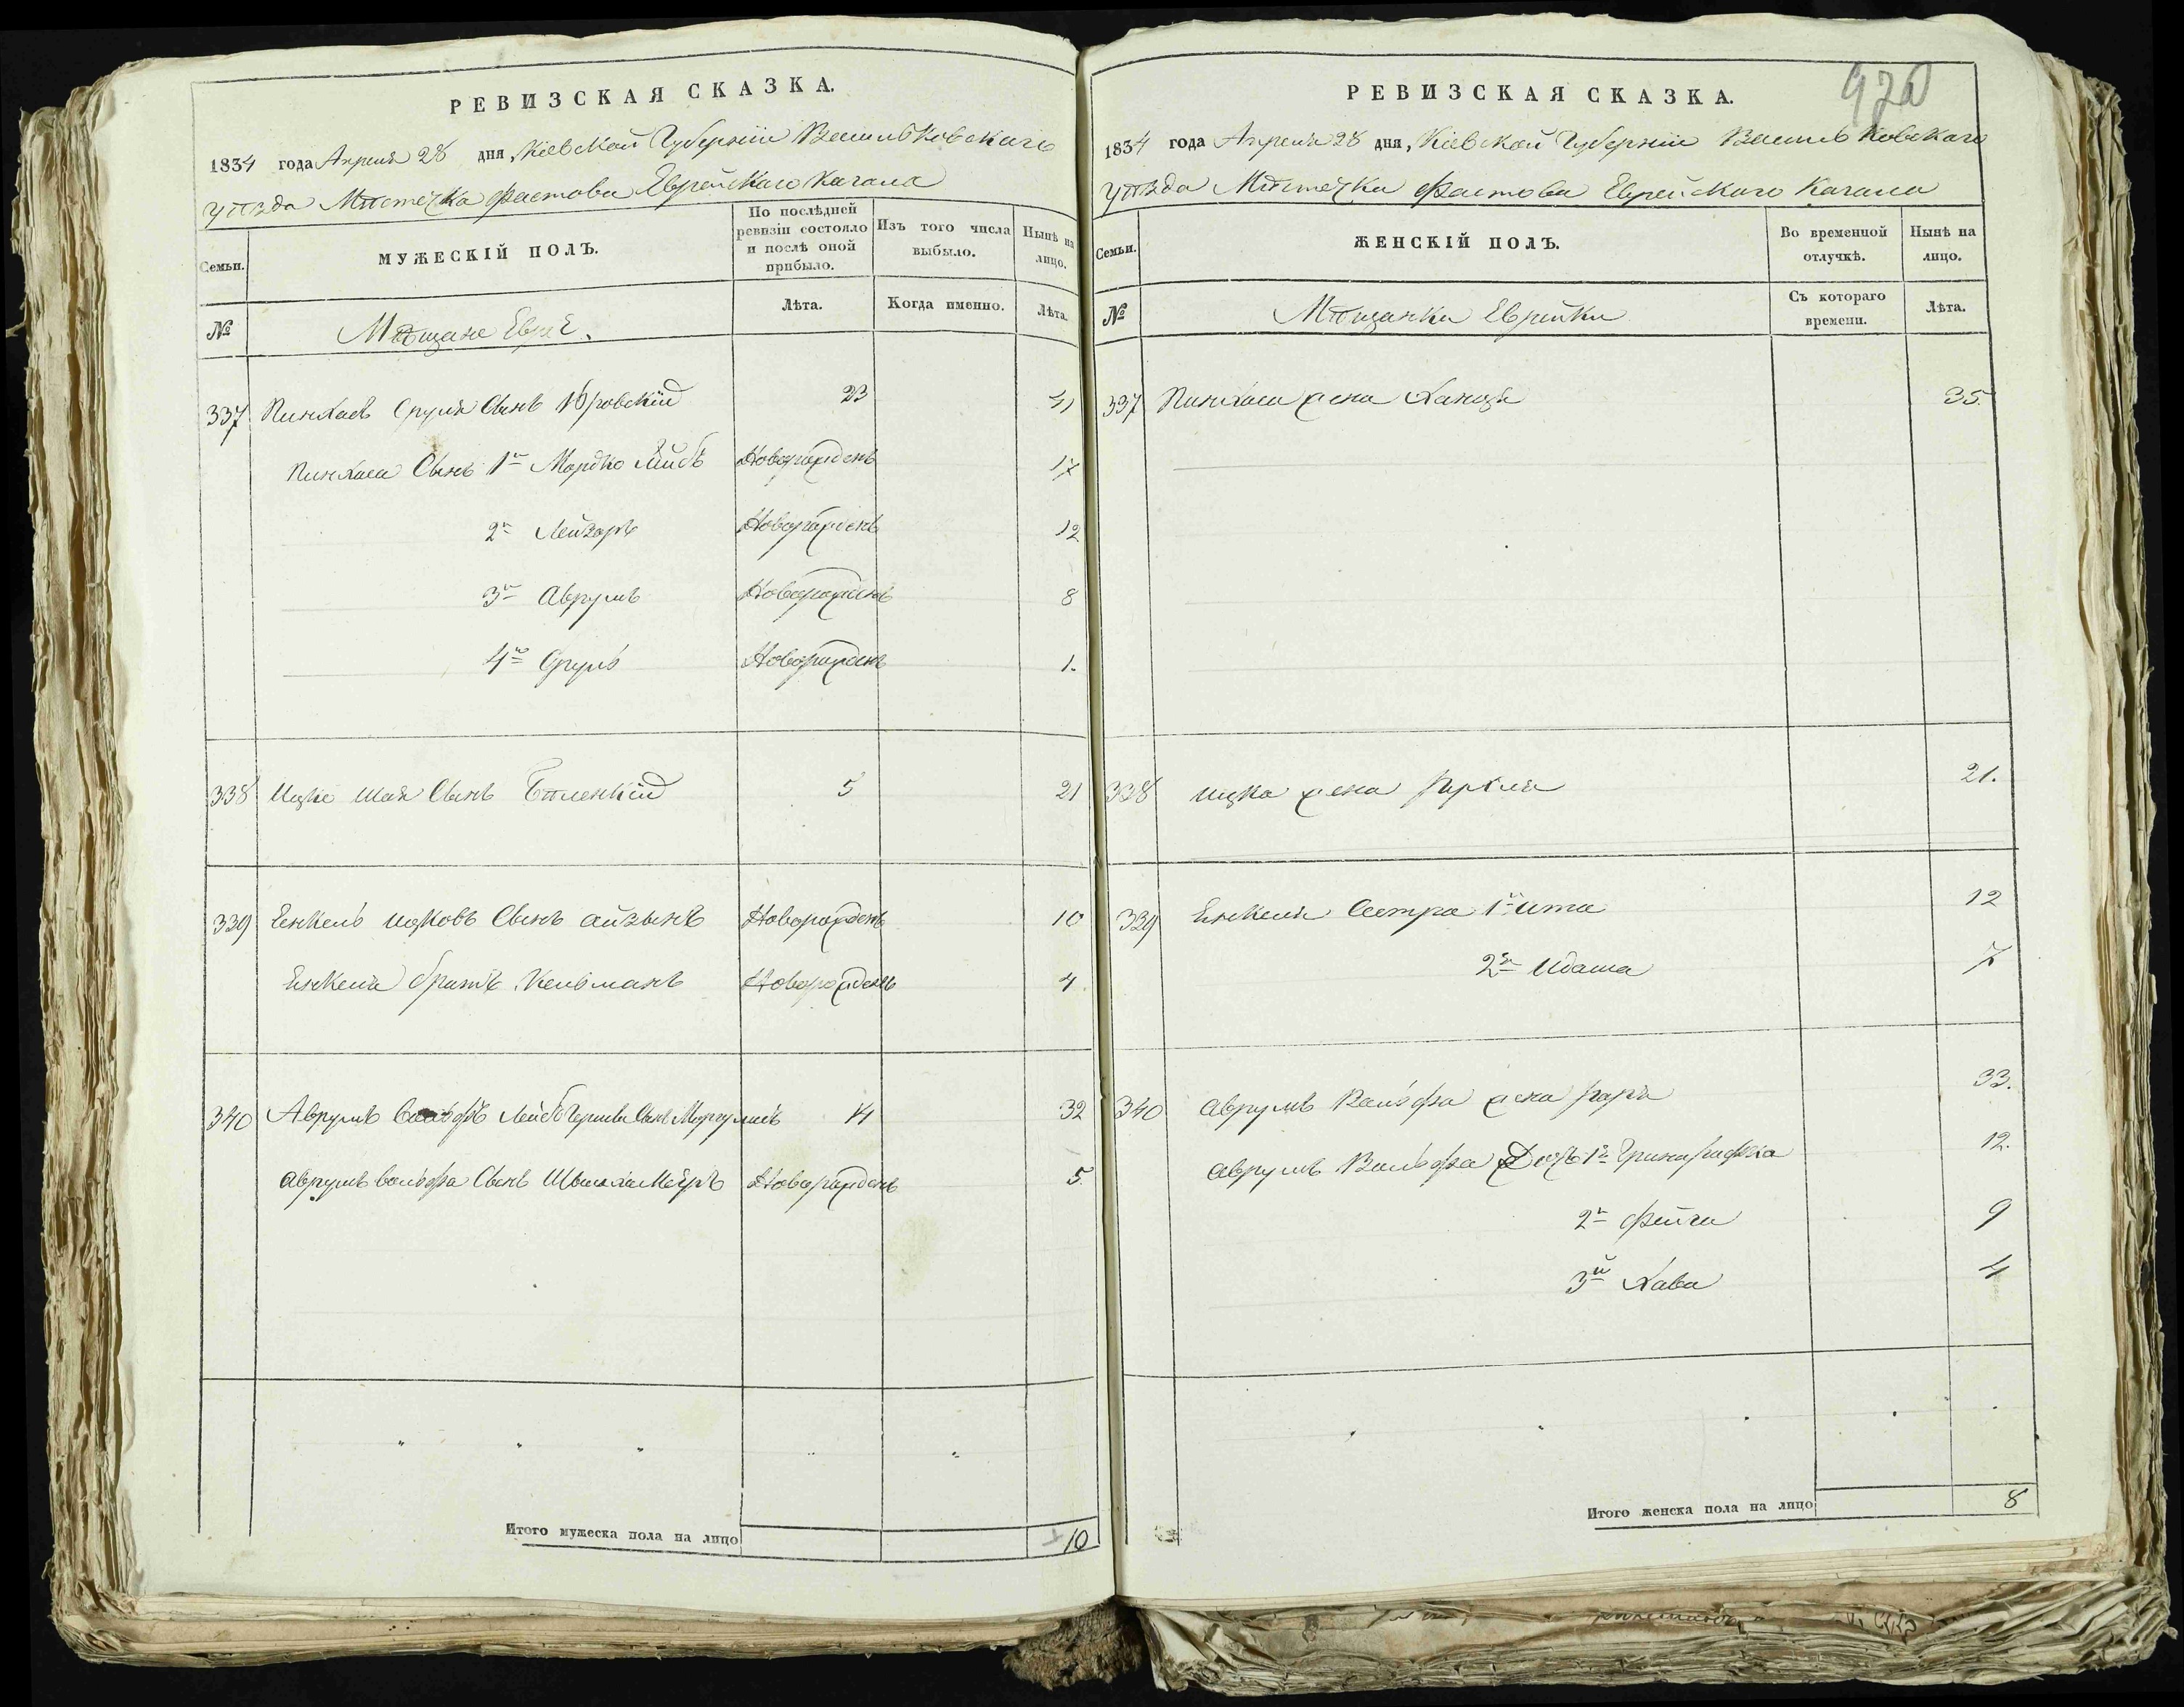 РЕВИЗСКАЯ СКАЗКА.
1834 года Апреля 28 дня, Кіевской Губерніи Васильковскаго
уѣзда Мѣстечка Фастова Еврейскаго Кагала
Семьи.
МУЖЕСКІЙ ПОЛЪ.
По послѣдней ревизіи состояло и послѣ оной прибыло.
Изъ того числа выбыло.
Нынѣ на лицо.
№
Мѣщане Евреи.
Лѣта.
Когда именно.
Лѣта.
337 Пинхасъ Сруля Сынъ 23 41
Пинхаса Сынъ 1й Мордко Лейбъ Новорожденъ 17
2й Лейзоръ Новорожденъ 12
3й Аврумъ Новорожденъ 8
4й Сруль Новорожденъ 1.
338 Ицко Шая Сынъ Бѣленкій 5 21
339 Енкель Ицковъ Сынъ Айзынъ Новорожденъ 10
Енкеля братъ Кельманъ Новорожденъ 4
340 Аврумъ Вольфъ Лейбъ Гершка Сынъ 14 32
Аврумъ Вольфа Сынъ Новорожденъ 5.
Итого мужеска пола на лицо 10
РЕВИЗСКАЯ СКАЗКА.
1834 года Апреля 28 дня, Кіевской Губерніи Васильковскаго
уѣзда Мѣстечка Фастова Еврейскаго Кагала
Семьи.
ЖЕНСКІЙ ПОЛЪ.
Во временной отлучкѣ.
Нынѣ на лицо.
№
Мѣщанки Еврейки
Съ котораго времени.
Лѣта.
337 Пинхаса жена 35.
338 Ицка жена 21.
339 Енкеля Сестра 1я Ита 12
2я Идаша 7
340 Аврумъ Вольфа жена 33.
Аврумъ Вольфа Дочь 1я 12.
2я Фейга 9
3й Хава 4
Итого женска пола на лицо 8